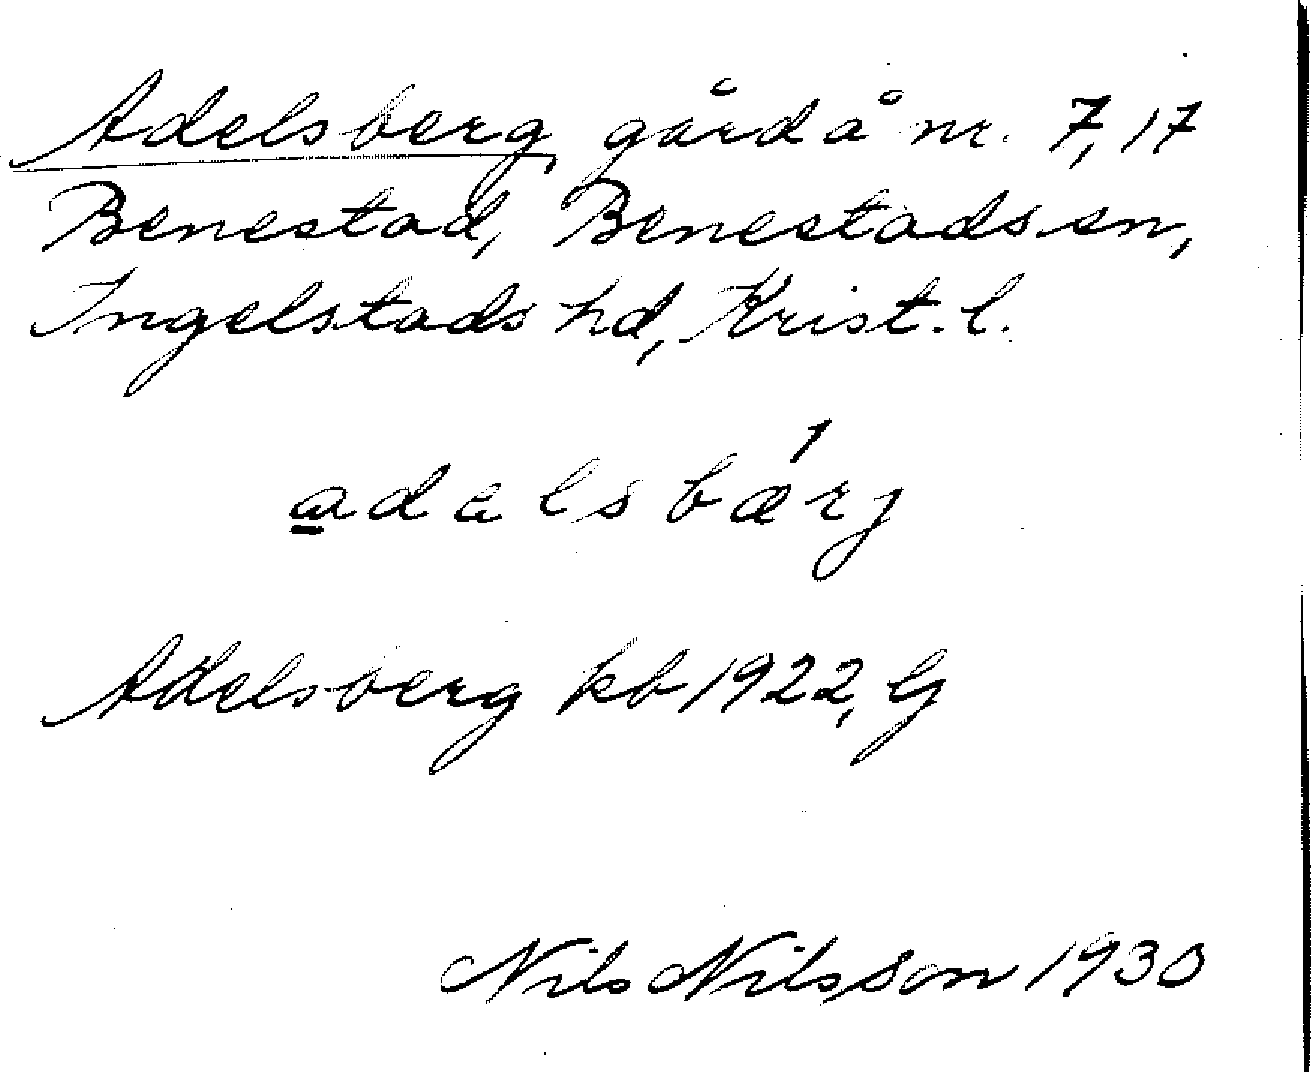 Adelsberg, gård å nr. 7, 17
Benestad, Benestads sn,
Ingelstads hd, Krist. l.
adalsbærj
Adelsberg kb 1922, G
Nils Nilsson 1930